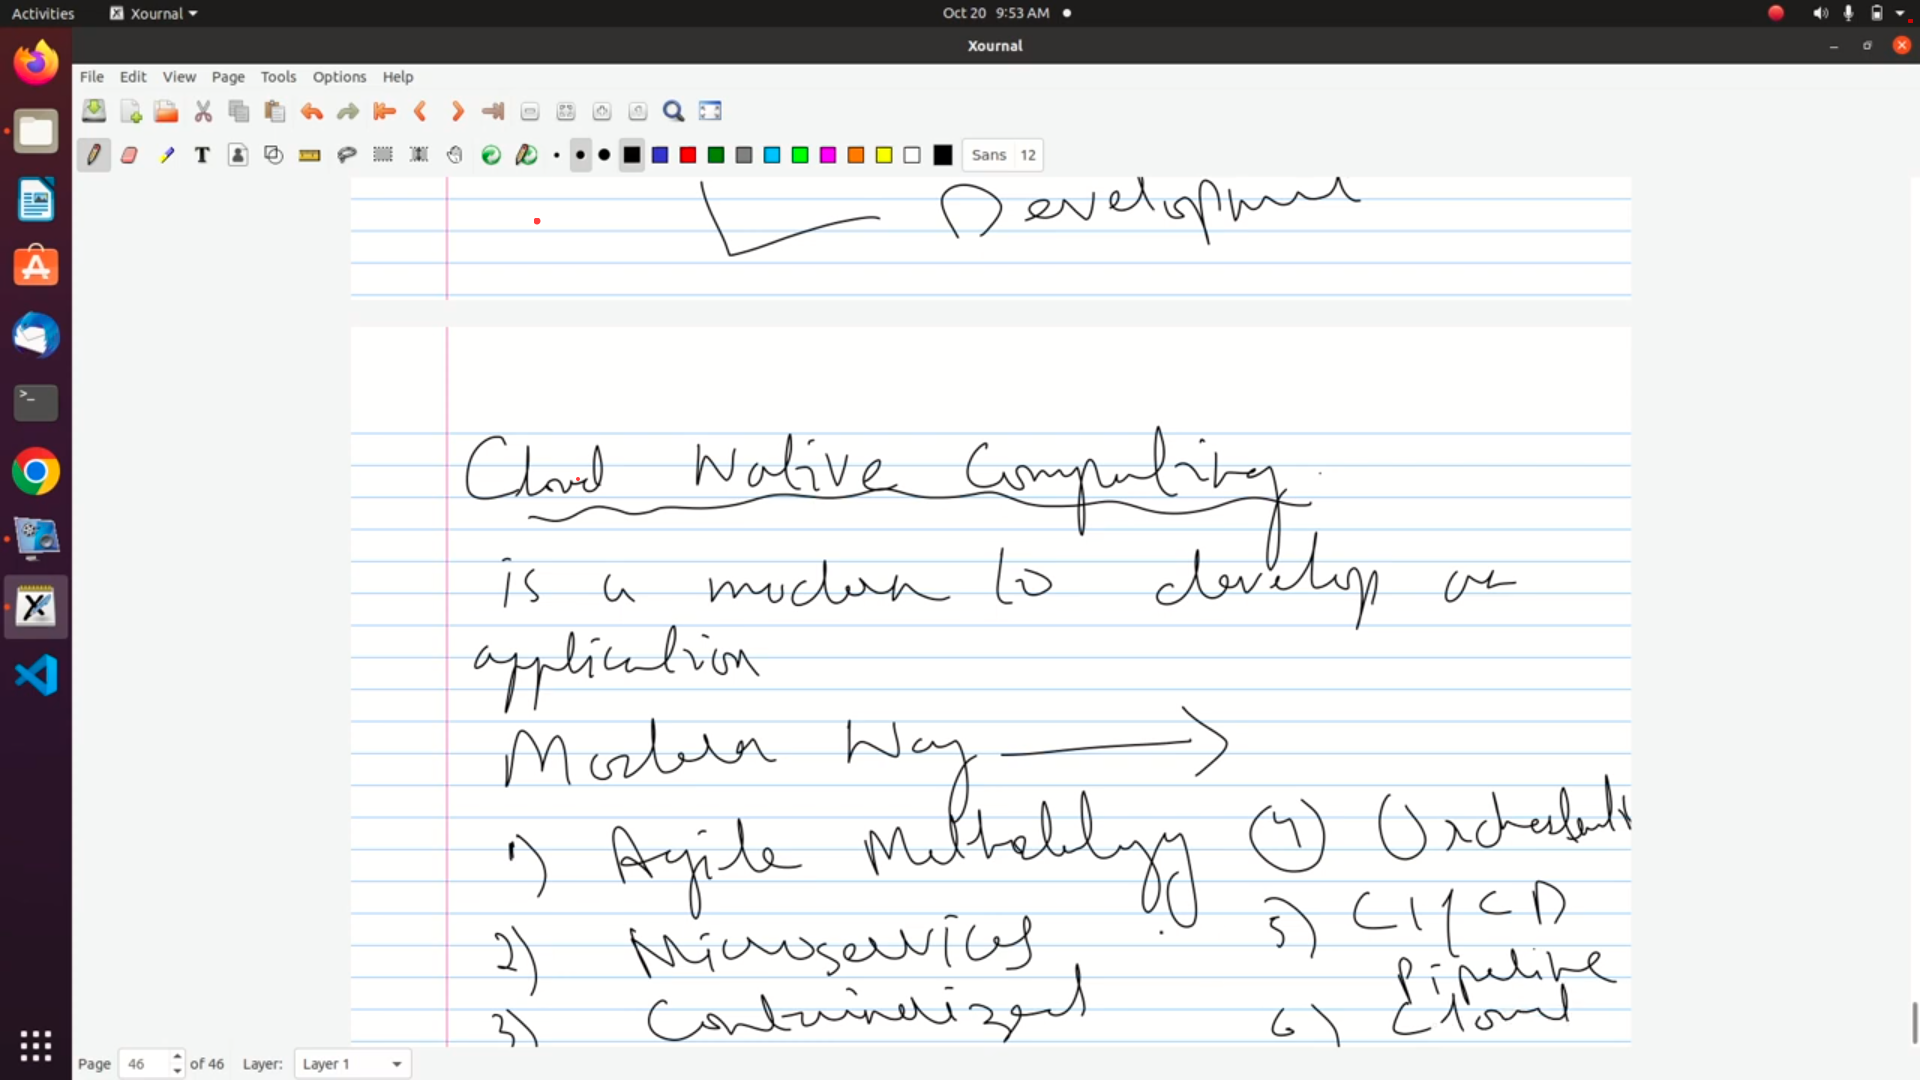 Activities Xournal Oct 20 9:53 AM
Xournal
File Edit View Page Tools Options Help
T Sans 12
Development
Cloud Native Computing
is a modern to develop an
application
Modern Way
1) Agile Methodology
2) Microservices
3) Containerized
4
5) CI/CD
Pipeline
6) Cloud
Page 46 of 46 Layer: Layer 1